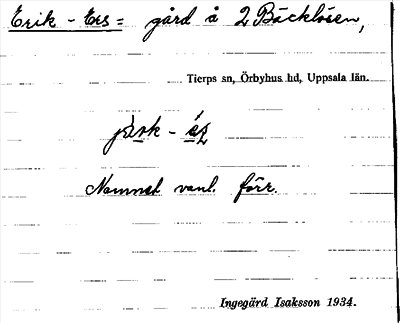 Erik-Ers = gård å 2 Bäcklösen,
Tierps sn, Örbyhus hd, Uppsala län.
Namnet vanl. förr.
Ingegärd Isaksson 1934.